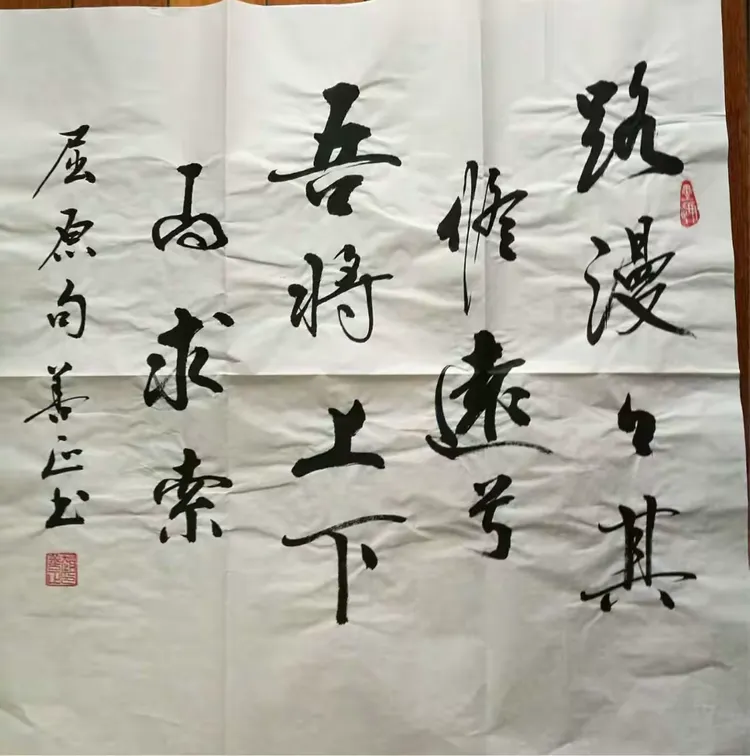 路漫々其
修遠兮
吾将上下
而求索
屈原句 善正书